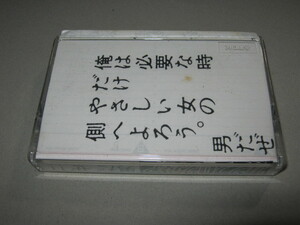 俺は必要な時
だけ
やさしい女の
側へよろう。
男だぜ